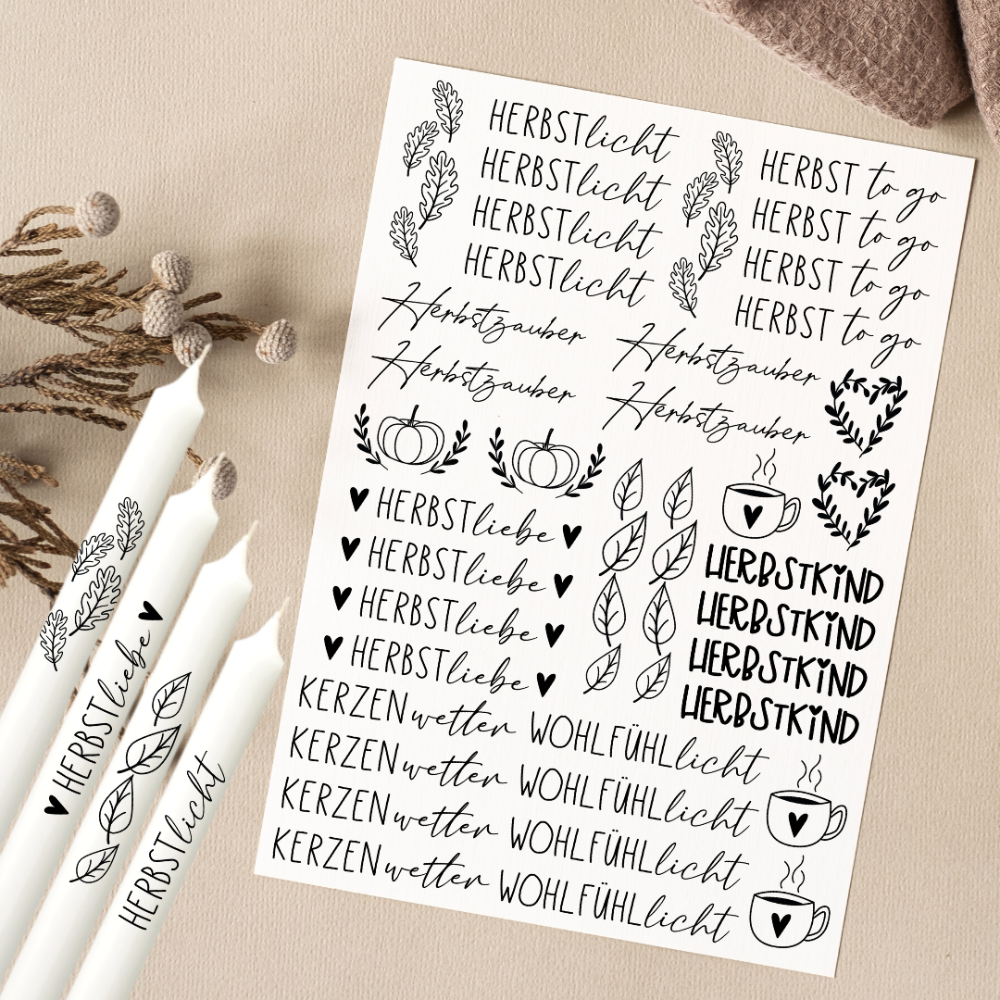 HERBSTlicht
HERBSTlicht
HERBSTlicht
HERBSTlicht
HERBST to go
HERBST to go
HERBST to go
HERBST to go
Herbstzauber
Herbstzauber
Herbstzauber
Herbstzauber
HERBSTliebe
HERBSTliebe
HERBSTliebe
HERBSTliebe
HERBSTKIND
HERBSTKIND
HERBSTKIND
HERBSTKIND
KERZENwetter WOHLFÜHLlicht
KERZENwetter WOHLFÜHLlicht
KERZENwetter WOHLFÜHLlicht
KERZENwetter WOHLFÜHLlicht
HERBSTliebe
HERBSTlicht